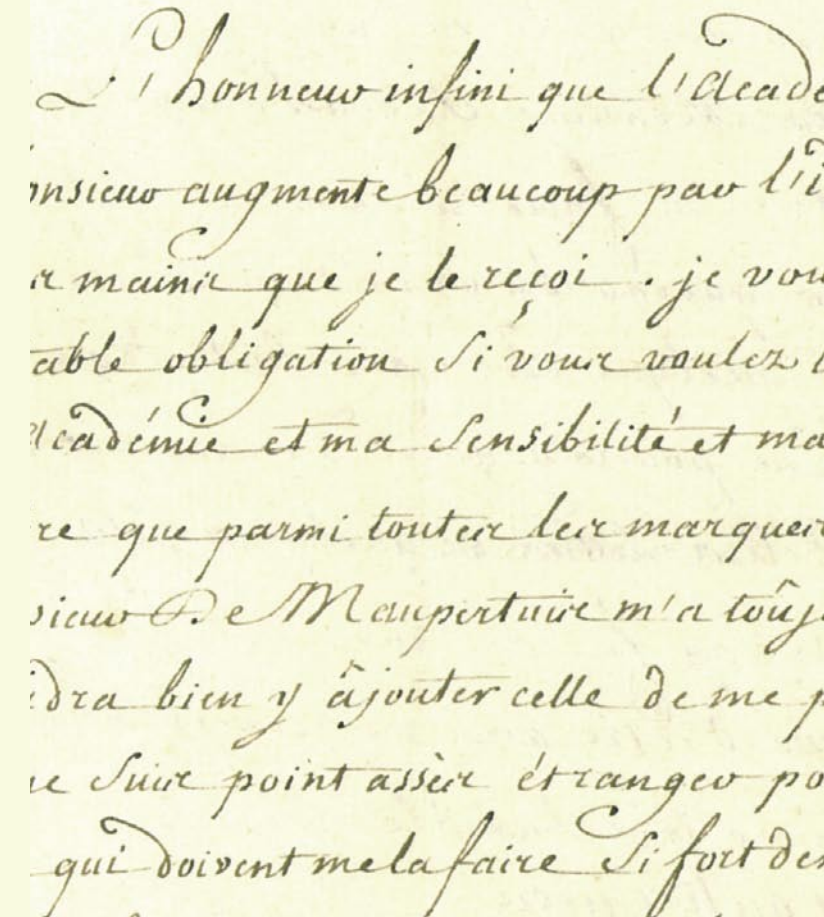 L'honneur infini que l'Acade
onsieur augmente beaucoup par l'i
s mains que je le reçoi . je vou
table obligation si vous voulez
Académie et ma sensibilité et ma
re que parmi toutes les marques
sieur De Maupertuis m'a toûj
dra bien y âjouter celle de me p
e suis point assès étranger po
qui doivent me la faire si fort des